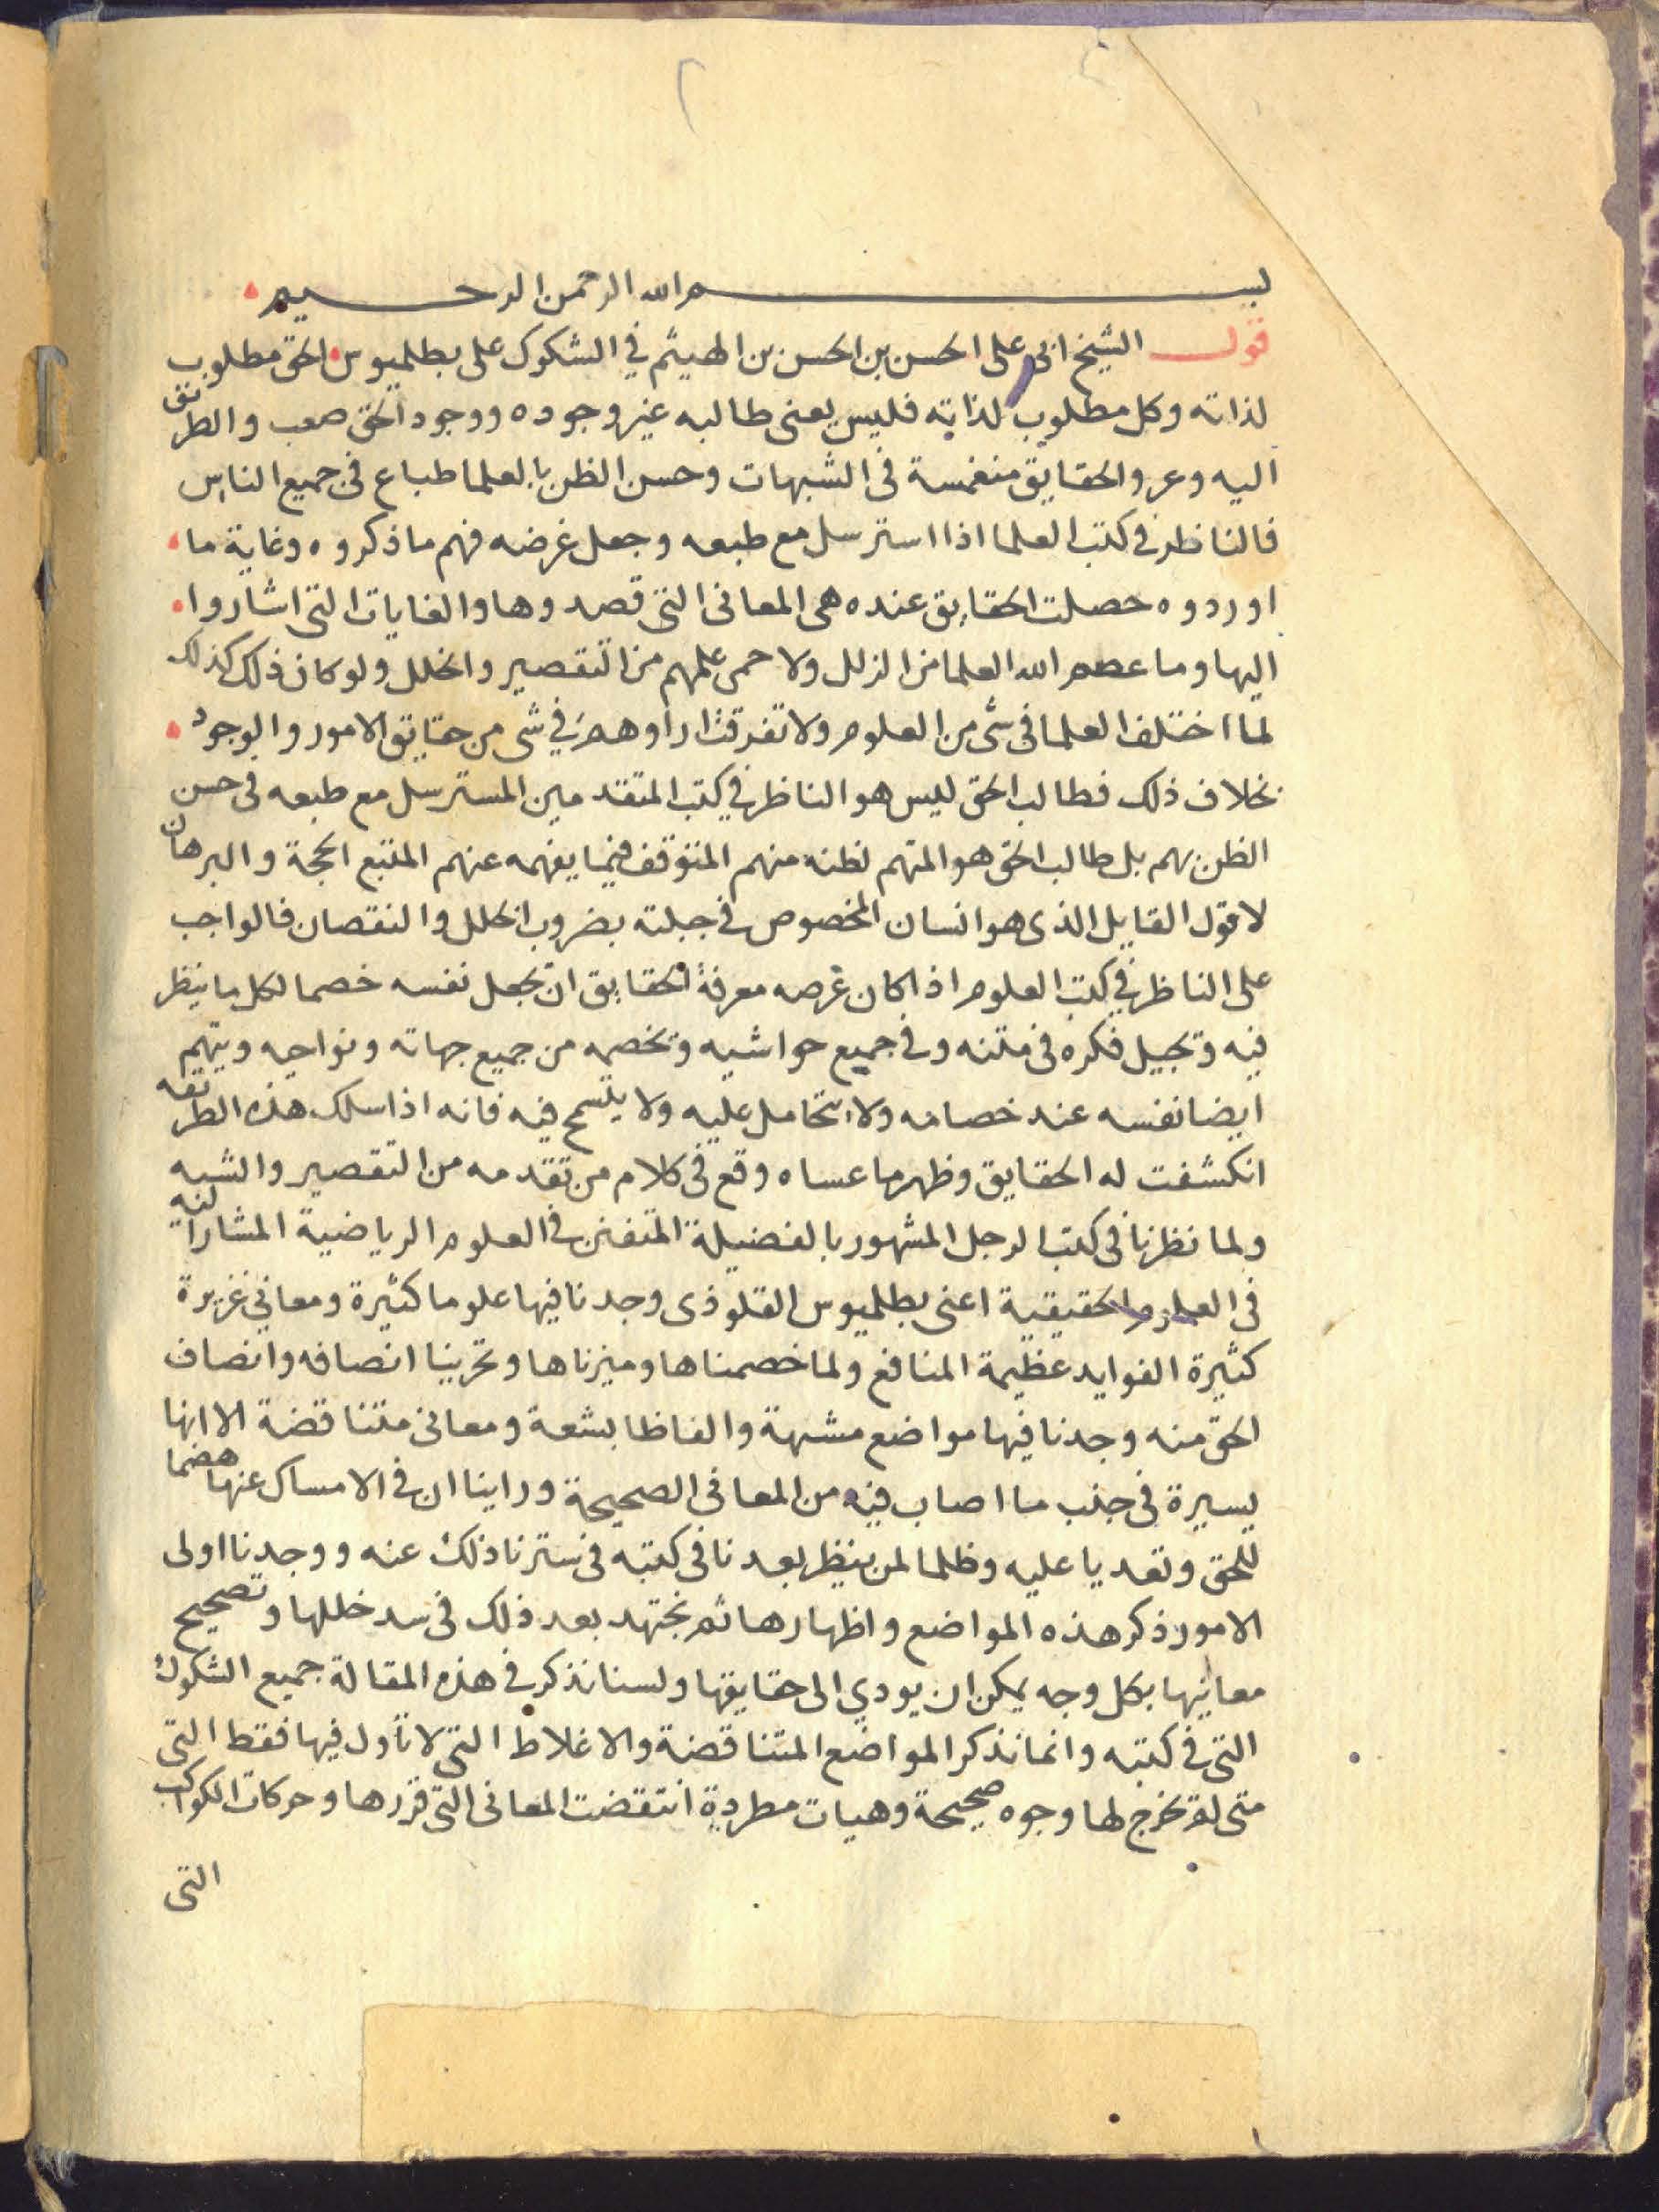 بسم الله الرحمن الرحيم
قول الشيخ ابى على الحسن بن الحسن بن الهيثم في الشكوك على بطلميوس الحق مطلوب
لذاته وكل مطلوب لذاته فليس يعنى طالبه غير وجوده ووجود الحق صعب والطريق
اليه وعر والحقايق منغمسة في الشبهات وحسن الظن بالعلما طباع في جميع الناس
فالناظر في كتب العلما اذا استرسل مع طبعه وجعل غرضه فهم ما ذكروه وغاية ما
اوردوه حصلت الحقايق عنده هي المعانى التى قصدوها والغايات التى اشاروا
اليها وما عصم الله العلما من الزلل ولا حمى علمهم من التقصير والخلل ولو كان ذلك كذلك
لما اختلف العلما في شى من العلوم ولا تفرقت اراوهم في شى من حقايق الامور والوجود
بخلاف ذلك فطالب الحق ليس هو الناظر في كتب المتقدمين المسترسل مع طبعه في حسن
الظن بهم بل طالب الحق هو المتهم لظنه منهم المتوقف فيما يفهمه عنهم المتبع الحجة والبرهان
لا قول القايل الذى هو انسان المخصوص في جبلته بضروب الخلل والنقصان فالواجب
على الناظر في كتب العلوم اذا كان غرضه معرفة الحقايق ان يجعل نفسه خصما لكل ما ينظر
فيه ويجيل فكره في متنه وفي جميع حواشيه ويخصمه من جميع جهاته ونواحيه ويتهم
ايضا نفسه عند خصامه ولا يتحامل عليه ولا يتسمح فيه فانه اذا سلك هذه الطريقه
انكشفت له الحقايق وظهر ما عساه وقع في كلام من تقدمه من التقصير والشبه
ولما نظرنا في كتب الرجل المشهور بالفضيلة المتفنن في العلوم الرياضية المشار اليه
في العلوم الحقيقية اعنى بطلميوس القلوذى وجدنا فيها علوما كثيرة ومعاني غزيرة
كثيرة الفوايد عظيمة المنافع ولما خصمناها وميزناها وتحرينا انصافه وانصاف
الحق منه وجدنا فيها مواضع مشبهة والفاظا بشعة ومعانى متناقضة الا انها
يسيرة في جنب ما اصاب فيه من المعانى الصحيحة وراينا ان في الامساك عنها هضما
للحق وتعديا عليه وظلما لمن ينظر بعدنا في كتبه في سترنا ذلك عنه ووجدنا اولى
الامور ذكر هذه المواضع واظهارها ثم نجتهد بعد ذلك في سد خللها وتصحيح
معانيها بكل وجه يمكن ان يودي الى حقايقها ولسنا نذكر في هذه المقالة جميع الشكوك
التى في كتبه وانما نذكر المواضع المتناقضة والاغلاط التى لا تأول فيها فقط التى
متى لم تخرج لها وجوه صحيحة وهيات مطردة انتقضت المعانى التى قررها وحركات الكواكب
التى